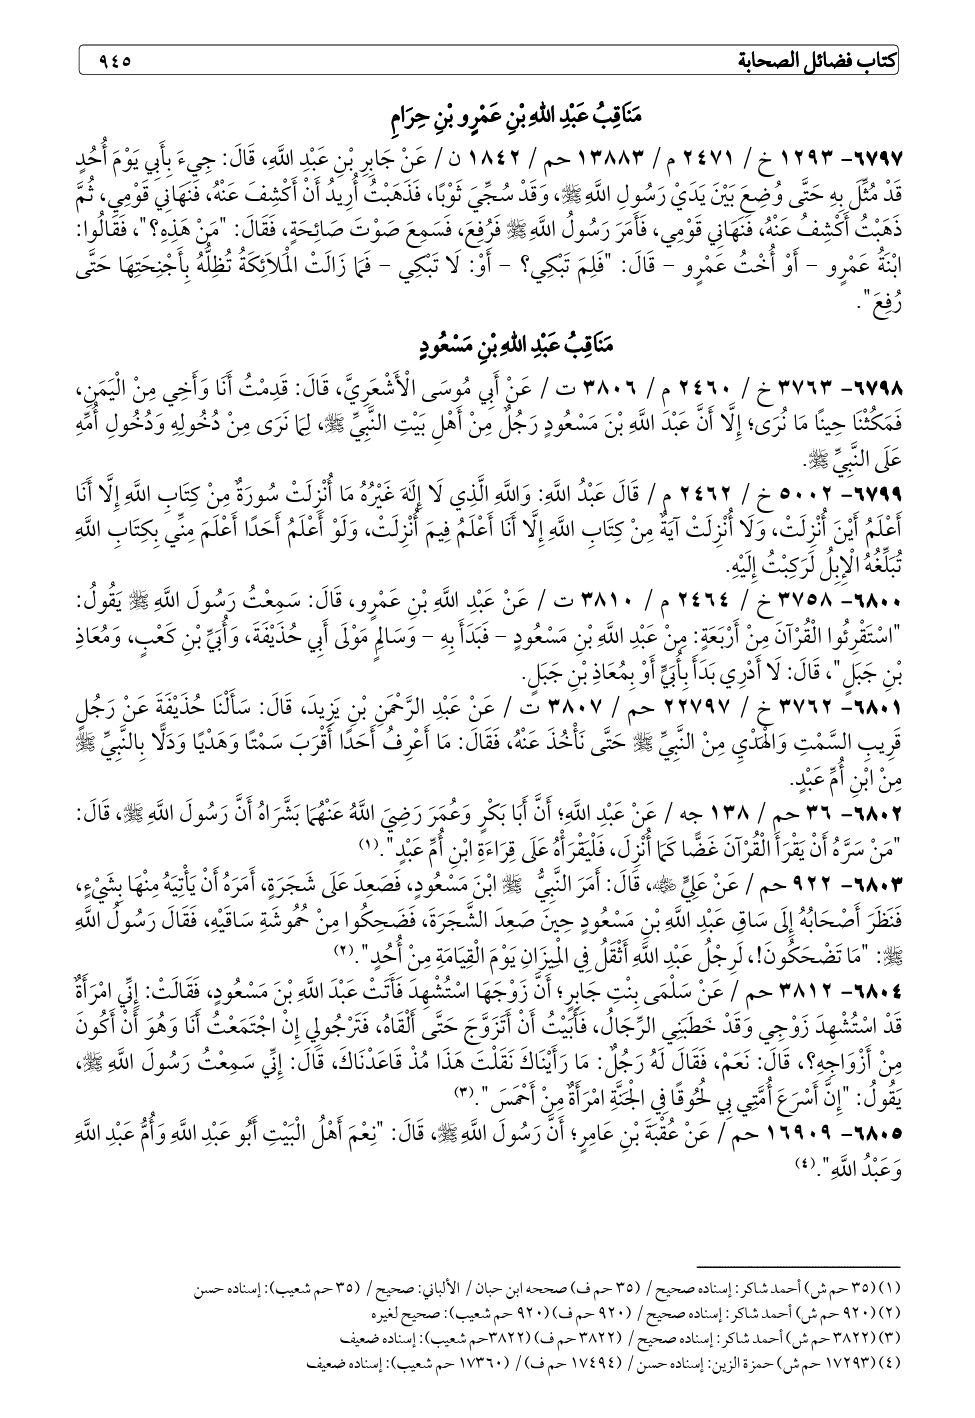 كتاب فضائل الصحابة ٩٤٥
مَنَاقِبُ عَبْدِ اللهِ بْنِ عَمْرٍو بْنِ حِرَامِ
٦٧٩٧- ١٢٩٣ خ/ ٢٤٧١ م/ ١٣٨٨٣ حم/ ١٨٤٢ ن/ عَنْ جَابِرِ بْنِ عَبْدِ اللَّهِ، قَالَ: جِيءَ بِأَبِي يَوْمَ أُحُدٍ
قَدْ مُثِّلَ بِهِ حَتَّى وُضِعَ بَيْنَ يَدَيْ رَسُولِ اللَّهِ ﷺ، وَقَدْ سُجِّيَ ثَوْبًا، فَذَهَبْتُ أُرِيدُ أَنْ أَكْشِفَ عَنْهُ، فَنَهَانِي قَوْمِي، ثُمَّ
ذَهَبْتُ أَكْشِفُ عَنْهُ، فَنَهَانِي قَوْمِي، فَأَمَرَ رَسُولُ اللَّهِ ﷺ فَرُفِعَ، فَسَمِعَ صَوْتَ صَائِحَةٍ، فَقَالَ: "مَنْ هَذِهِ؟"، فَقَالُوا:
ابْنَةُ عَمْرٍو – أَوْ أُخْتُ عَمْرٍو – قَالَ: "فَلِمَ تَبْكِي؟ – أَوْ: لَا تَبْكِي – فَمَا زَالَتْ الْمَلاَئِكَةُ تُظِلُّهُ بِأَجْنِحَتِهَا حَتَّى
رُفِعَ".
مَنَاقِبُ عَبْدِ اللهِ بْنِ مَسْعُودٍ
٦٧٩٨- ٣٧٦٣ خ/ ٢٤٦٠ م/ ٣٨٠٦ ت/ عَنْ أَبِي مُوسَى الْأَشْعَرِيَّ، قَالَ: قَدِمْتُ أَنَا وَأَخِي مِنْ الْيَمَنِ،
فَمَكُثْنَا حِينًا مَا نُرَى؛ إِلَّا أَنَّ عَبْدَ اللَّهِ بْنَ مَسْعُودٍ رَجُلٌ مِنْ أَهْلِ بَيْتِ النَّبِيِّ ﷺ، لِمَا نَرَى مِنْ دُخُولِهِ وَدُخُولِ أُمِّهِ
عَلَى النَّبِيِّ ﷺ.
٦٧٩٩- ٥٠٠٢ خ/ ٢٤٦٢ م/ قَالَ عَبْدُ اللَّهِ: وَاللَّهِ الَّذِي لَا إِلَهَ غَيْرُهُ مَا أُنْزِلَتْ سُورَةٌ مِنْ كِتَابِ اللَّهِ إِلَّا أَنَا
أَعْلَمُ أَيْنَ أُنْزِلَتْ، وَلَا أُنْزِلَتْ آيَةٌ مِنْ كِتَابِ اللَّهِ إِلَّا أَنَا أَعْلَمُ فِيمَ أُنْزِلَتْ، وَلَوْ أَعْلَمُ أَحَدًا أَعْلَمَ مِنِّي بِكِتَابِ اللَّهِ
تُبَلِّغُهُ الْإِبِلُ لَرَكِبْتُ إِلَيْهِ.
٦٨٠٠- ٣٧٥٨ خ/ ٢٤٦٤ م/ ٣٨١٠ ت/ عَنْ عَبْدِ اللَّهِ بْنِ عَمْرٍو، قَالَ: سَمِعْتُ رَسُولَ اللَّهِ ﷺ يَقُولُ:
"اسْتَقْرِئُوا الْقُرْآنَ مِنْ أَرْبَعَةٍ: مِنْ عَبْدِ اللَّهِ بْنِ مَسْعُودٍ – فَبَدَأَ بِهِ – وَسَالِمٍ مَوْلَى أَبِي حُذَيْفَةَ، وَأُبَيِّ بْنِ كَعْبٍ، وَمُعَاذِ
بْنِ جَبَلٍ"، قَالَ: لَا أَدْرِي بَدَأَ بِأُبَيٍّ أَوْ بِمُعَاذِ بْنِ جَبَلٍ.
٦٨٠١- ٣٧٦٢ خ/ ٢٢٧٩٧ حم/ ٣٨٠٧ ت/ عَنْ عَبْدِ الرَّحْمَنِ بْنِ يَزِيدَ، قَالَ: سَأَلْنَا حُذَيْفَةَ عَنْ رَجُلٍ
قَرِيبِ السَّمْتِ وَالْهَدْيِ مِنْ النَّبِيِّ ﷺ حَتَّى نَأْخُذَ عَنْهُ، فَقَالَ: مَا أَعْرِفُ أَحَدًا أَقْرَبَ سَمْتًا وَهَدْيًا وَدَلًّا بِالنَّبِيِّ ﷺ
مِنْ ابْنِ أُمِّ عَبْدٍ.
٦٨٠٢- ٣٦ حم/ ١٣٨ جه/ عَنْ عَبْدِ اللَّهِ؛ أَنَّ أَبَا بَكْرٍ وَعُمَرَ رَضِيَ اللَّهُ عَنْهُمَا بَشَّرَاهُ أَنَّ رَسُولَ اللَّهِ ﷺ، قَالَ:
"مَنْ سَرَّهُ أَنْ يَقْرَأَ الْقُرْآنَ غَضًّا كَمَا أُنْزِلَ، فَلْيَقْرَأْهُ عَلَى قِرَاءَةِ ابْنِ أُمِّ عَبْدٍ".(١)
٦٨٠٣- ٩٢٢ حم/ عَنْ عَلِيٍّ ؓ، قَالَ: أَمَرَ النَّبِيُّ ﷺ ابْنَ مَسْعُودٍ، فَصَعِدَ عَلَى شَجَرَةٍ، أَمَرَهُ أَنْ يَأْتِيَهُ مِنْهَا بِشَيْءٍ،
فَنَظَرَ أَصْحَابُهُ إِلَى سَاقِ عَبْدِ اللَّهِ بْنِ مَسْعُودٍ حِينَ صَعِدَ الشَّجَرَةَ، فَضَحِكُوا مِنْ حُمُوشَةِ سَاقَيْهِ، فَقَالَ رَسُولُ اللَّهِ
ﷺ: "مَا تَضْحَكُونَ!، لَرِجْلُ عَبْدِ اللَّهِ أَثْقَلُ فِي الْمِيزَانِ يَوْمَ الْقِيَامَةِ مِنْ أُحُدٍ".(٢)
٦٨٠٤- ٣٨١٢ حم/ عَنْ سَلْمَى بِنْتِ جَابِرٍ؛ أَنَّ زَوْجَهَا اسْتُشْهِدَ فَأَتَتْ عَبْدَ اللَّهِ بْنَ مَسْعُودٍ، فَقَالَتْ: إِنِّي امْرَأَةٌ
قَدْ اسْتُشْهِدَ زَوْجِي وَقَدْ خَطَبَنِي الرِّجَالُ، فَأَبَيْتُ أَنْ أَتَزَوَّجَ حَتَّى أَلْقَاهُ، فَتَرْجُو لِي إِنْ اجْتَمَعْتُ أَنَا وَهُوَ أَنْ أَكُونَ
مِنْ أَزْوَاجِهِ؟، قَالَ: نَعَمْ، فَقَالَ لَهُ رَجُلٌ: مَا رَأَيْنَاكَ نَقَلْتَ هَذَا مُذْ قَاعَدْنَاكَ، قَالَ: إِنِّي سَمِعْتُ رَسُولَ اللَّهِ ﷺ،
يَقُولُ: "إِنَّ أَسْرَعَ أُمَّتِي بِي لُحُوقًا فِي الْجَنَّةِ امْرَأَةٌ مِنْ أَحْمَسَ".(٣)
٦٨٠٥- ١٦٩٠٩ حم/ عَنْ عُقْبَةَ بْنِ عَامِرٍ؛ أَنَّ رَسُولَ اللَّهِ ﷺ، قَالَ: "نِعْمَ أَهْلُ الْبَيْتِ أَبُو عَبْدِ اللَّهِ وَأُمُّ عَبْدِ اللَّهِ
وَعَبْدُ اللَّهِ".(٤)
(١) (٣٥ حم ش) أحمد شاكر: إسناده صحيح/ (٣٥ حم ف) صححه ابن حبان/ الألباني: صحيح/ (٣٥ حم شعيب): إسناده حسن
(٢) (٩٢٠ حم ش) أحمد شاكر: إسناده صحيح/ (٩٢٠ حم ف) (٩٢٠ حم شعيب): صحيح لغيره
(٣) (٣٨٢٢ حم ش) أحمد شاكر: إسناده صحيح/ (٣٨٢٢ حم ف) (٣٨٢٢حم شعيب): إسناده ضعيف
(٤) (١٧٢٩٣ حم ش) حمزة الزين: إسناده حسن/ (١٧٤٩٤ حم ف)/ (١٧٣٦٠ حم شعيب): إسناده ضعيف